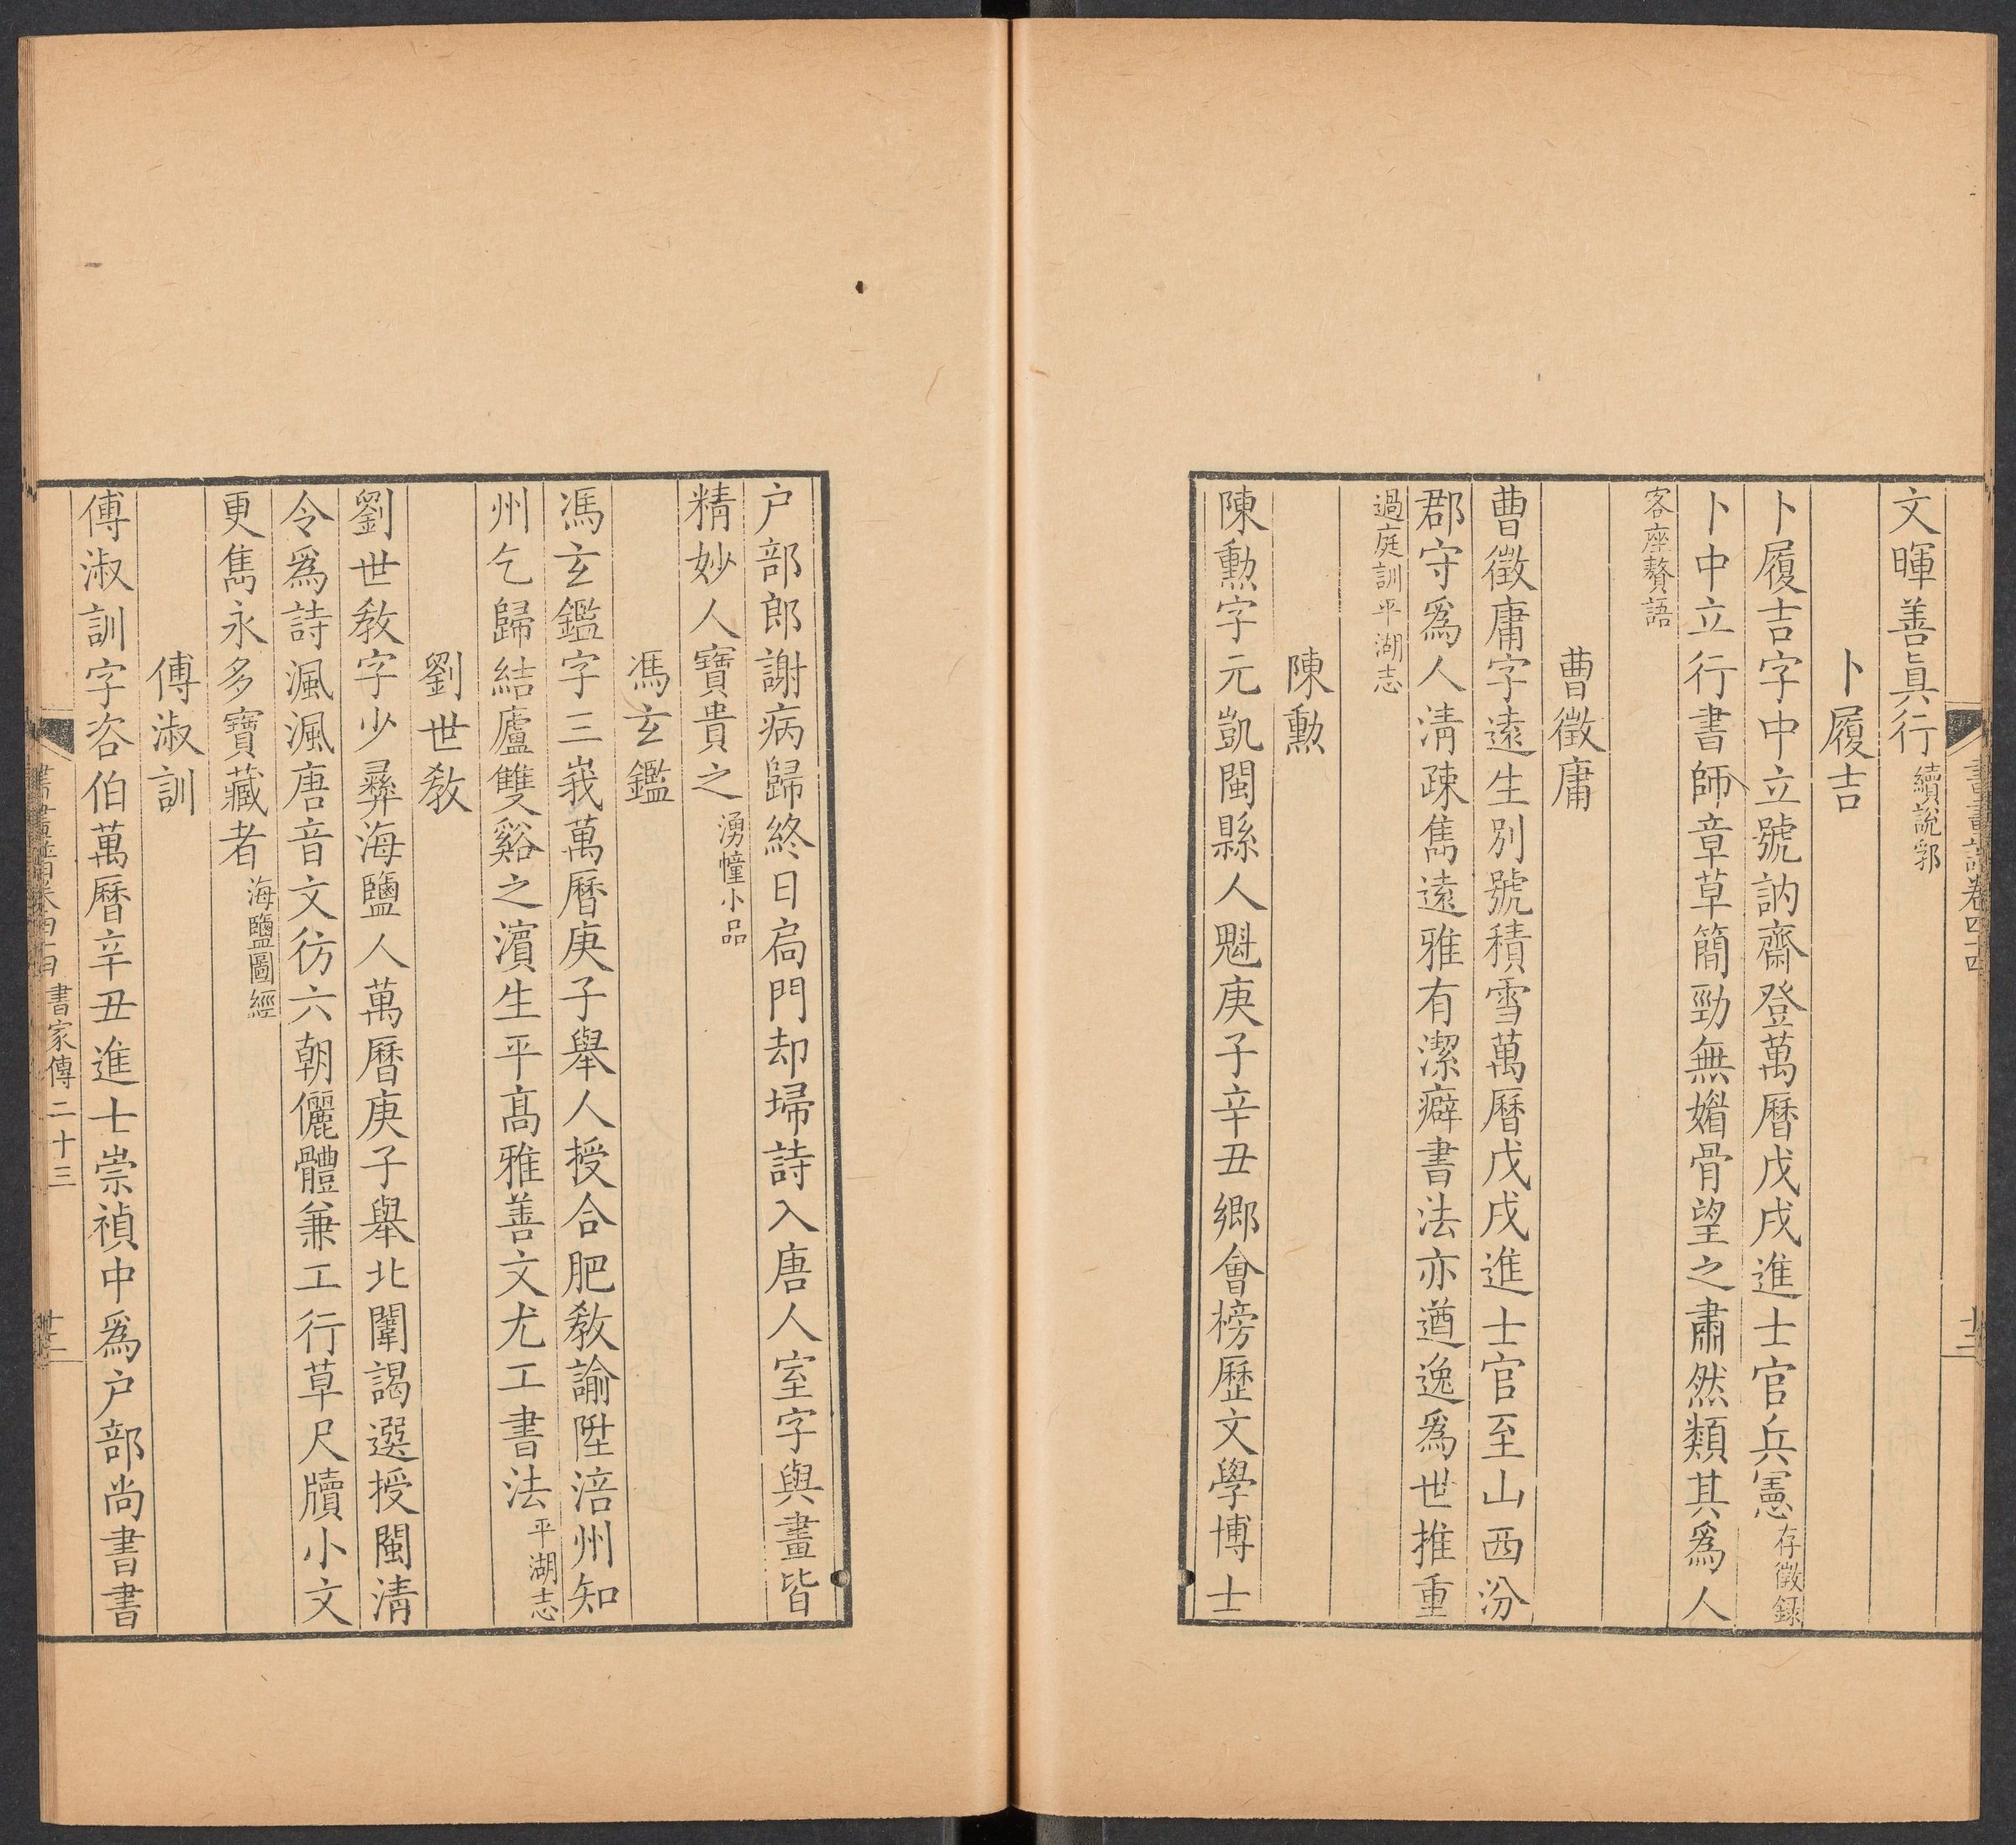 文暉善眞行續說郛
卜履吉
卜履吉字中立號訥齋登萬曆戊戌進士官兵憲存徵錄
卜中立行書師章草簡勁無媚骨望之肅然類其爲人
客座贅語
曹徵庸
曹徵庸字遠生別號積雪萬曆戊戌進士官至山西汾
郡守爲人清疎雋遠雅有潔癖書法亦遒逸爲世推重
過庭訓平湖志
陳勲
陳勲字元凱閩縣人魁庚子辛丑鄉會榜歷文學博士
户部郎謝病歸終日扃門却埽詩入唐人室字與畫皆
精妙人寶貴之湧幢小品
馮玄鑑
馮玄鑑字三峩萬曆庚子舉人授合肥教諭陞涪州知
州乞歸結廬雙谿之濵生平髙雅善文尤工書法平湖志
劉世教
劉世教字少彝海鹽人萬曆庚子舉北闈謁選授閩清
令爲詩渢渢唐音文彷六朝儷體兼工行草尺牘小文
更雋永多寶藏者海鹽圖經
傅淑訓
傅淑訓字咨伯萬曆辛丑進士崇禎中爲户部尚書書
書家傳二十三